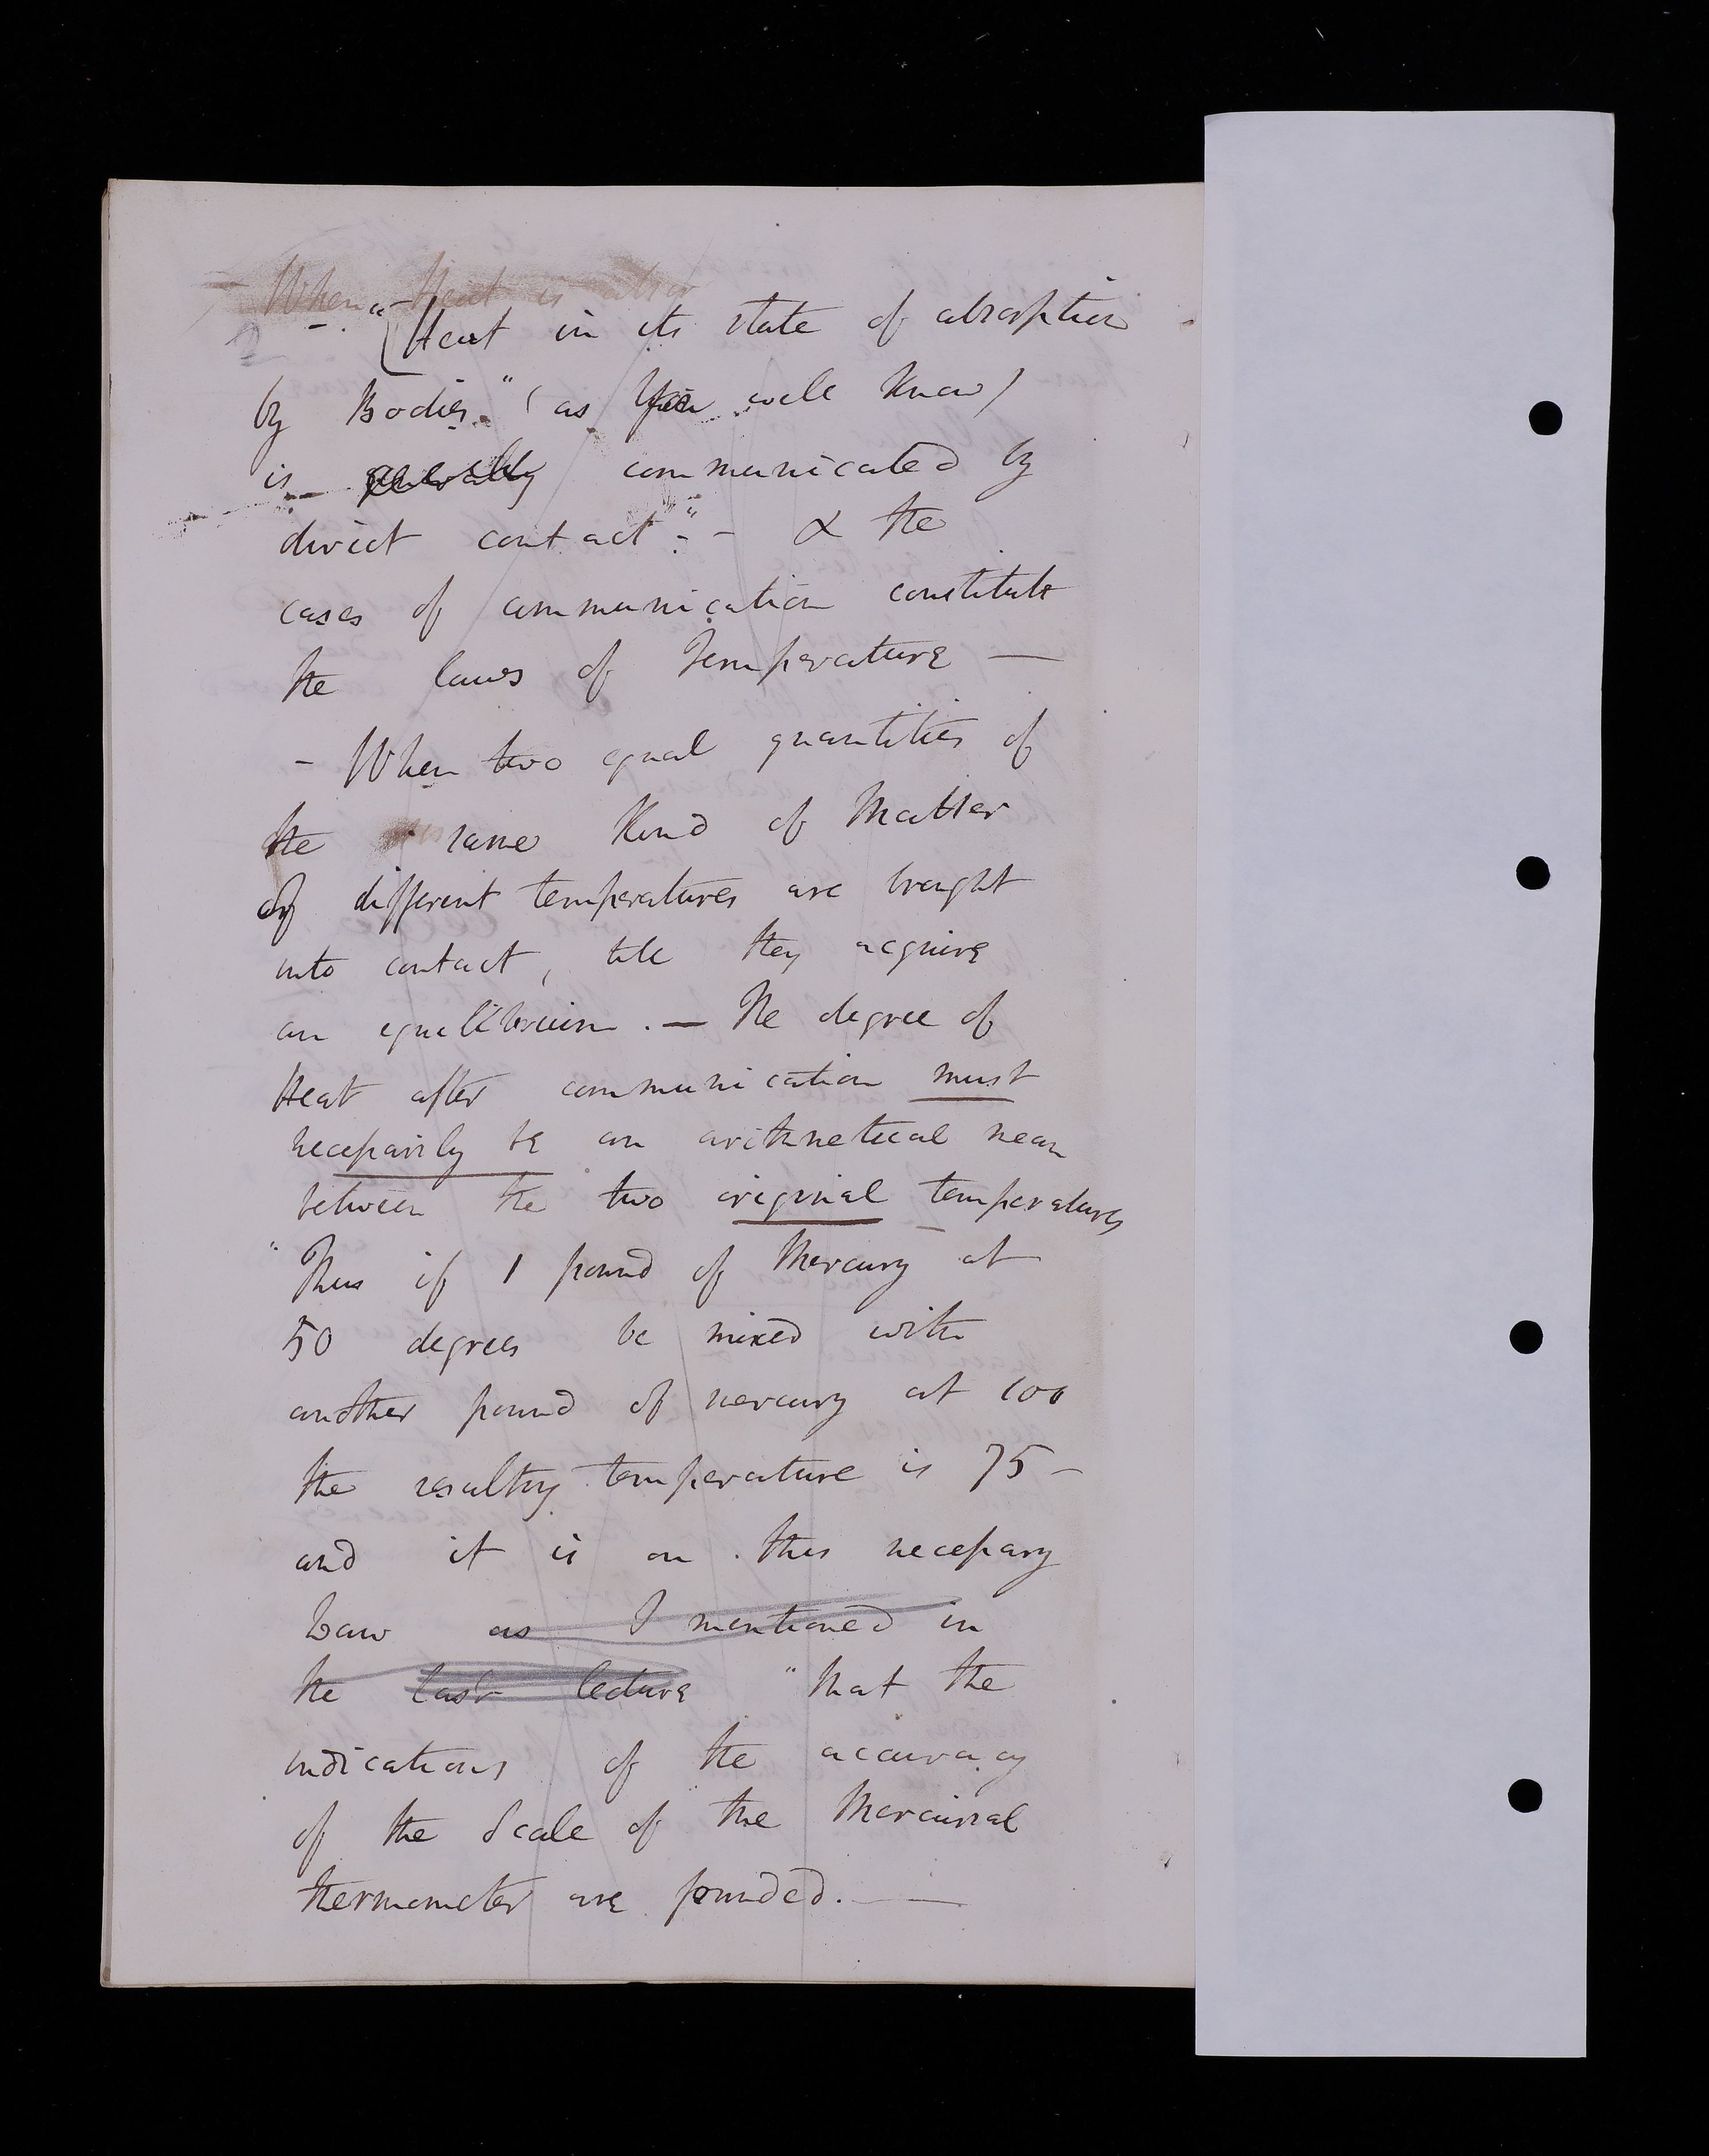 - When Heat is
2 - "Heat in its state of absorption
by Bodies." (as You well know)
is generally communicated by
direct contact". - & the
cases of communication constitute
the laws of Temperature —
- When two equal quantities of
the same Kind of Matter
of different temperatures are brought
into contact, till they acquire
an equilibrium. — The degree of
Heat after communication must
necessarily be an arithmetical mean
between the two original temperatures
"Thus if 1 pound of Mercury at
50 degrees be mixed with
another pound of mercury at 100
the resulting temperature is 75 -
and it is on this necessary
Law as I mentioned in
the last lecture "that the
indications of the accuracy
of the Scale of the Mercurial
thermometer are founded. —